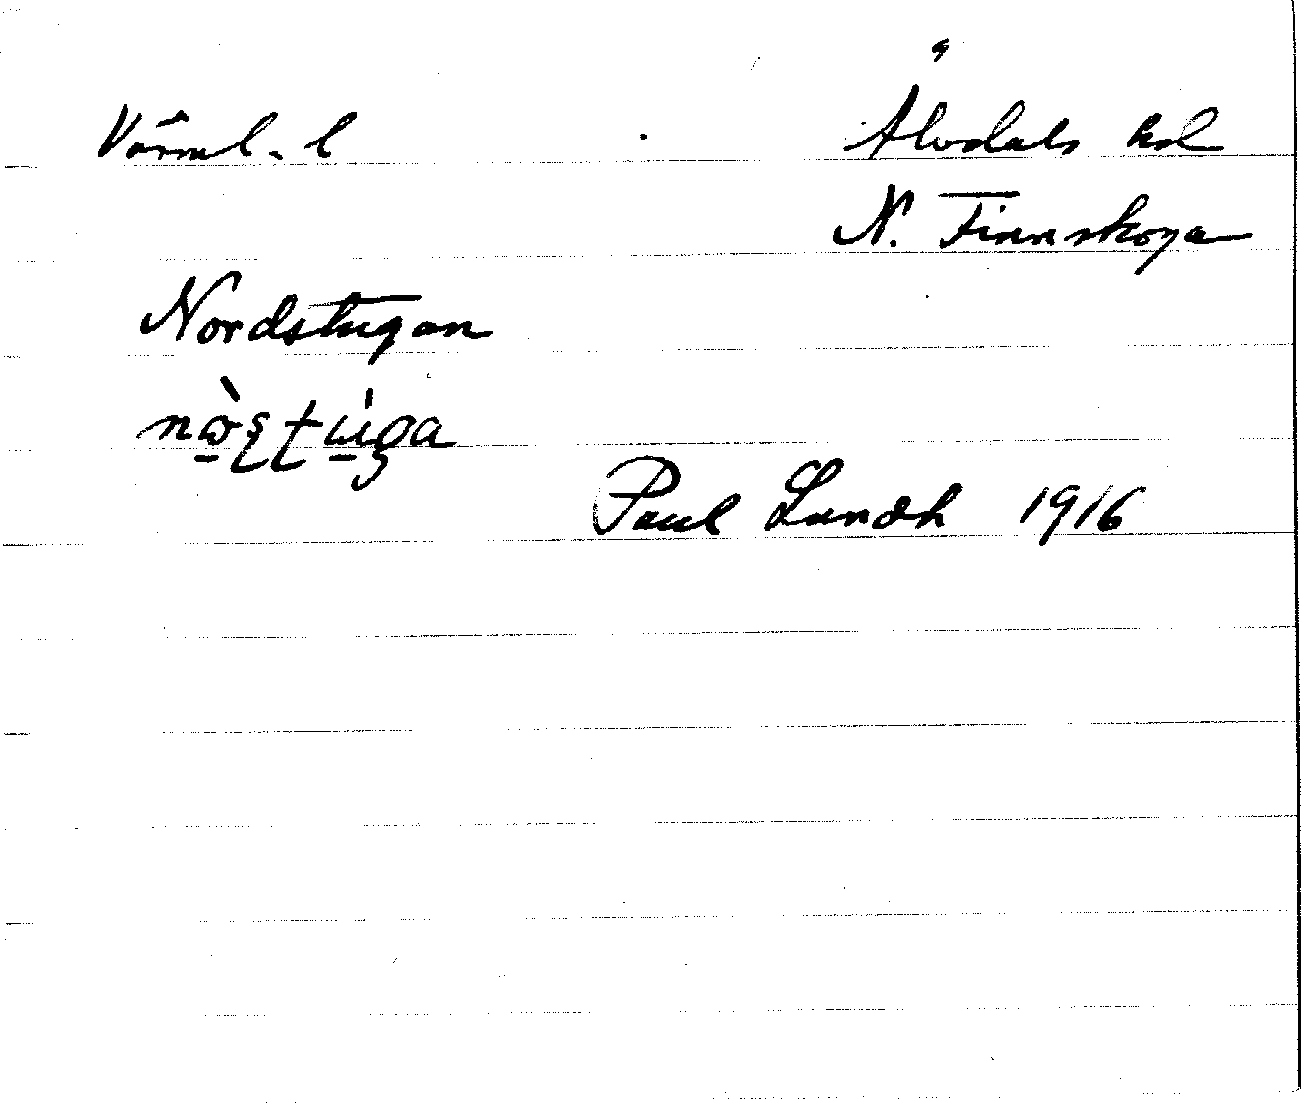 Värml. l Älvdals hd
N. Finnskoga
Nordstugan
Paul Lundh 1916